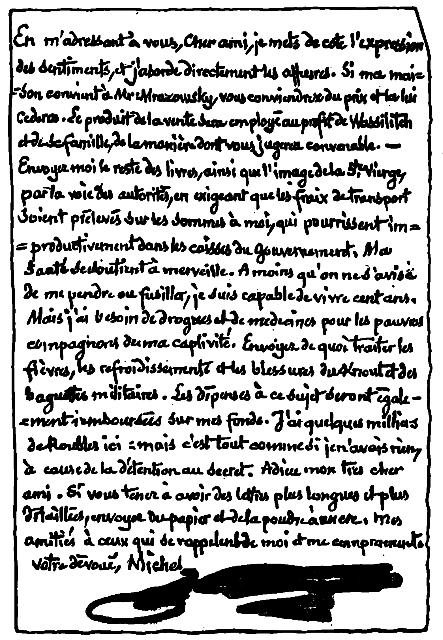 En m'adressant à vous, Cher ami, je mets de côté l'expression
des sentiments, et j'aborde directement les affaires. Si ma mai=
=son convient à Mr Mrazowsky, vous conviendrez du prix et la lui
Cederez. Le produit de la vente sera employé au profit de Wassilitch
et de sa famille, de la manière dont vous jugerez convenable. —
Envoyez moi le reste des livres, ainsi que l'image de la Ste Vierge,
par la voie des autorités, en exigeant que les fraix de transport
Soient prélevés sur les sommes à moi, qui pourrissent im=
= productivement dans les caisses du Gouvernement. Ma
Santé se soutient à merveille. A moins qu'on ne s'avise
de me pendre ou fusiller, je suis capable de vivre cent ans.
Mais j'ai besoin de drogues et de medecines pour les pauvres
compagnons de ma captivité. Envoyez de quoi traiter les
fièvres, les refroidissements et les blessures du Knout et des
baguettes militaires. Les dépenses à ce sujet seront égale=
=ment remboursées sur mes fonds. J'ai quelques milliers
de Roubles ici = mais c'est tout comme si je n'avais rien,
à cause de la détention au secret. Adieu mon très cher
ami. Si vous tenez à avoir des lettres plus longues et plus
détaillées, envoyez du papier et de la poudre à encre. Mes
amitiés à ceux qui se rappelent de moi et me comprennent
votre dévoué, Michel